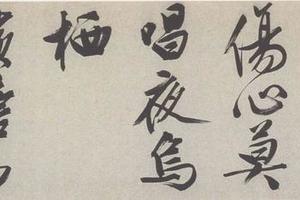 傷心莫
唱夜烏
栖